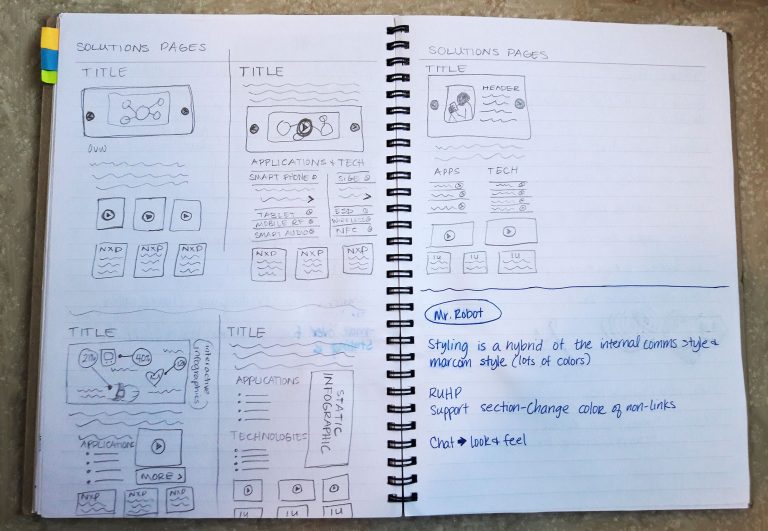 SOLUTIONS PAGES
TITLE
OVW
NXP
NXP
NXP
TITLE
APPLICATIONS & TECH
SMART PHONE
SIGE
TABLET
MOBILE RF
SMART AUDIO
ESD
WIRELESS
NFC
NXP
NXP
NXP
TITLE
21%
40%
(interactive infographics)
APPLICATIONS
MORE >
NXP
NXP
NXP
TITLE
APPLICATIONS
TECHNOLOGIES
STATIC
INFOGRAPHIC
IU
IU
IU
SOLUTIONS PAGES
TITLE
HEADER
APPS
TECH
IU
IU
IU
Mr. Robot
Styling is a hybrid of the internal comms style &
marcom style (lots of colors)
RUHP
Support section-Change color of non-links
Chat → look & feel